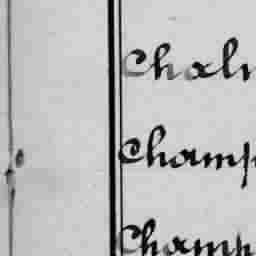 Chaln
Champ
Champ